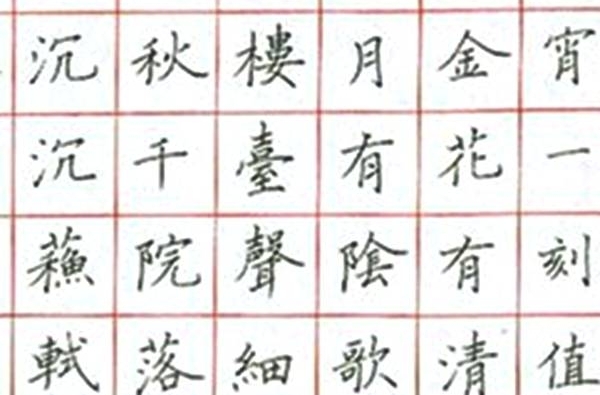 宵一刻值
金花有清
月有陰歌
樓臺聲細
秋千院落
沉沉蘓軾